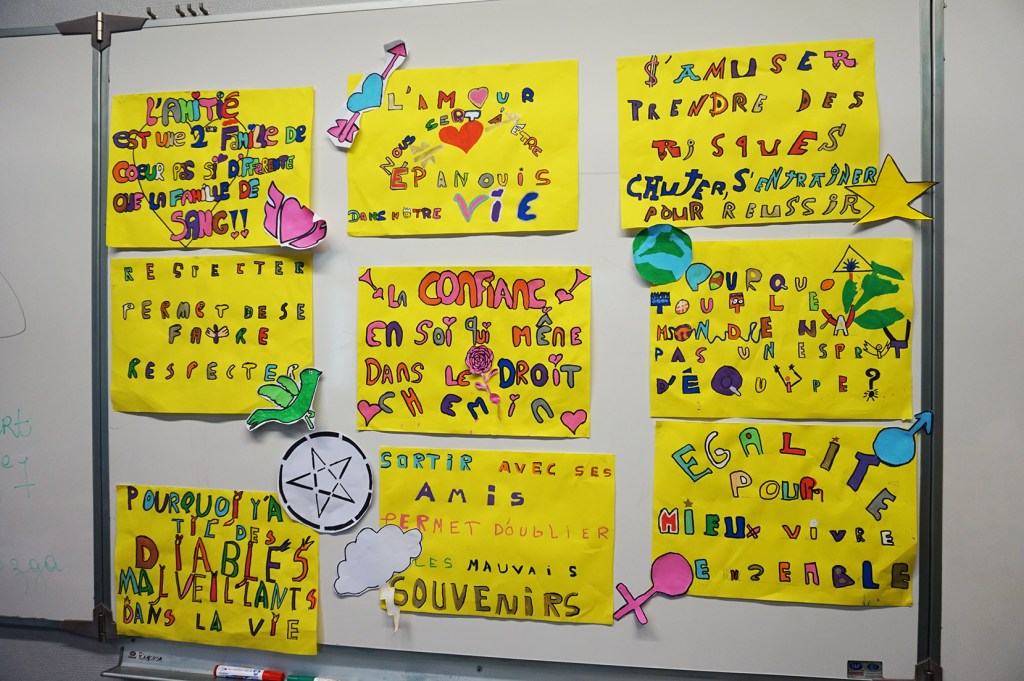 L'AMITIÉ
EST UNE 2ème FAMILLE DE
COEUR PAS SI DIFFERENTE
QUE LA FAMILLE DE
SANG!!
L'AMOUR
NOUS SERT À ÊTRE
ÉPANOUIS
DANS NOTRE VIE
S'AMUSER
PRENDRE DES
RISQUES
CHUTER, S'ENTRAÎNER
POUR REUSSIR
RESPECTER
PERMET DE SE
FAIRE
RESPECTER
LA CONFIANCE
EN SOI QUI MÊNE
DANS LE DROIT
CHEMIN
POURQUOI
TOUT LE
MONDE N'A
PAS UN ESPRIT
D'ÉQUIPE?
POURQUOI Y'A
T'IL DES
DIABLES
MALVEILLANTS
DANS LA VIE
SORTIR AVEC SES
AMIS
PERMET D'OUBLIER
LES MAUVAIS
SOUVENIRS
EGALITE
POUR
MIEUX VIVRE
ENSEMBLE